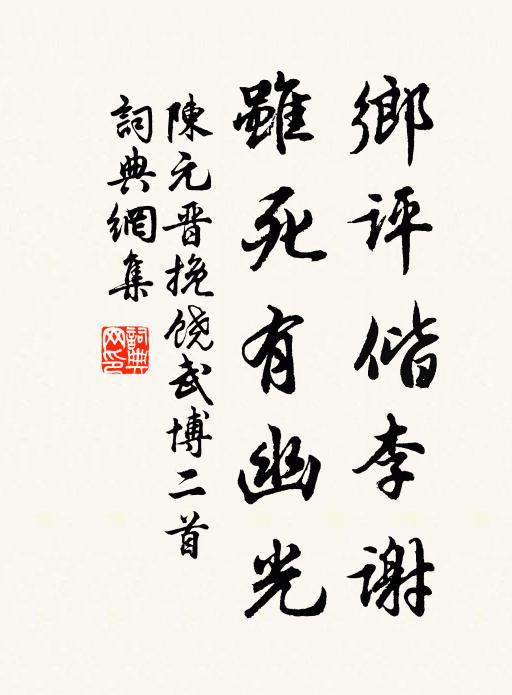 鄉评偕李谢
雖死有幽光
陳元晋挽饶武博二首
詞典網集
詞典网印